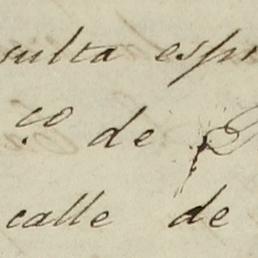 sulta espr
ço de
calle de